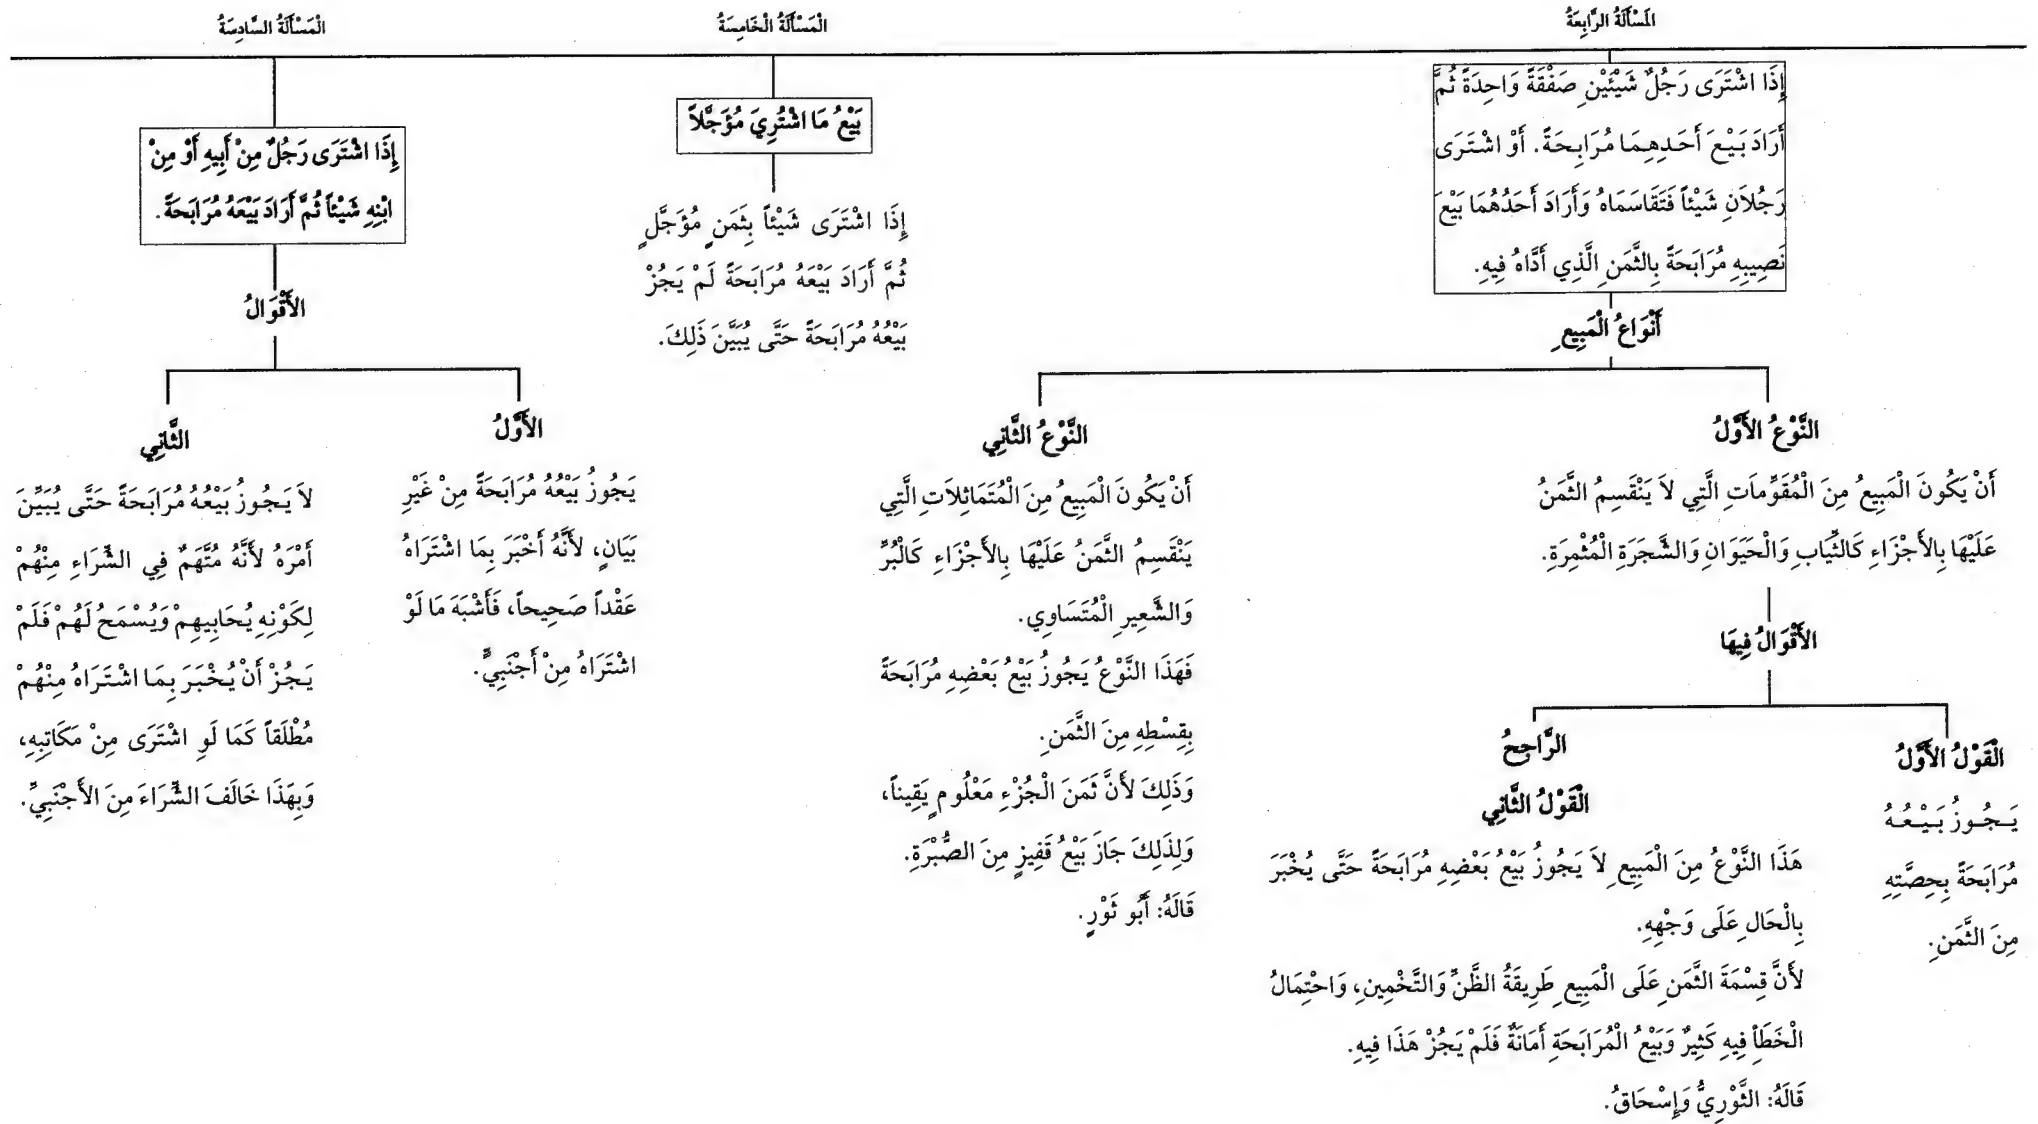 الْمَسْأَلَةُ الرَّابِعَةُ
إِذَا اشْتَرَى رَجُلٌ شَيْئَيْنِ صَفْقَةً وَاحِدَةً ثُمَّ
أَرَادَ بَيْعَ أَحَدِهِمَا مُرَابَحَةً. أَوْ اشْتَرَى
رَجُلاَنِ شَيْئاً فَتَقَاسَمَاهُ وَأَرَادَ أَحَدُهُمَا بَيْعَ
نَصِيبِهِ مُرَابَحَةً بِالثَّمَنِ الَّذِي أَدَّاهُ فِيهِ.
أَنْوَاعُ الْمَبِيعِ
النَّوْعُ الأَوَّلُ
أَنْ يَكُونَ الْمَبِيعُ مِنَ الْمُقَوَّمَاتِ الَّتِي لاَ يَنْقَسِمُ الثَّمَنُ
عَلَيْهَا بِالأَجْزَاءِ كَالثِّيَابِ وَالْحَيَوَانِ وَالشَّجَرَةِ الْمُثْمِرَةِ.
الأَقْوَالُ فِيهَا
الْقَوْلُ الأَوَّلُ
يَـجُـوزُ بَـيْـعُـهُ
مُرَابَحَةً بِحِصَّتِهِ
مِنَ الثَّمَنِ.
الرَّاجِحُ
الْقَوْلُ الثَّانِي
هَذَا النَّوْعُ مِنَ الْمَبِيعِ لاَ يَجُوزُ بَيْعُ بَعْضِهِ مُرَابَحَةً حَتَّى يُخْبَرَ
بِالْحَالِ عَلَى وَجْهِهِ.
لأَنَّ قِسْمَةَ الثَّمَنِ عَلَى الْمَبِيعِ طَرِيقَةُ الظَّنِّ وَالتَّخْمِينِ، وَاحْتِمَالُ
الْخَطَأِ فِيهِ كَثِيرٌ وَبَيْعُ الْمُرَابَحَةِ أَمَانَةٌ فَلَمْ يَجُزْ هَذَا فِيهِ.
قَالَهُ: الثَّوْرِيُّ وَإِسْحَاقُ.
النَّوْعُ الثَّانِي
أَنْ يَكُونَ الْمَبِيعُ مِنَ الْمُتَمَاثِلاَتِ الَّتِي
يَنْقَسِمُ الثَّمَنُ عَلَيْهَا بِالأَجْزَاءِ كَالْبُرِّ
وَالشَّعِيرِ الْمُتَسَاوِي.
فَهَذَا النَّوْعُ يَجُوزُ بَيْعُ بَعْضِهِ مُرَابَحَةً
بِقِسْطِهِ مِنَ الثَّمَنِ.
وَذَلِكَ لأَنَّ ثَمَنَ الْجُزْءِ مَعْلُومٍ يَقِيناً،
وَلِذَلِكَ جَازَ بَيْعُ قَفِيزٍ مِنَ الصُّبْرَةِ.
قَالَهُ: أَبُو ثَوْرٍ.
الْمَسْأَلَةُ الْخَامِسَةُ
بَيْعُ مَا اشْتُرِيَ مُؤَجَّلاً
إِذَا اشْتَرَى شَيْئاً بِثَمَنٍ مُؤَجَّلٍ
ثُمَّ أَرَادَ بَيْعَهُ مُرَابَحَةً لَمْ يَجُزْ
بَيْعُهُ مُرَابَحَةً حَتَّى يُبَيَّنَ ذَلِكَ.
الْمَسْأَلَةُ السَّادِسَةُ
إِذَا اشْتَرَى رَجُلٌ مِنْ أَبِيهِ أَوْ مِنْ
ابْنِهِ شَيْئاً ثُمَّ أَرَادَ بَيْعَهُ مُرَابَحَةً.
الأَقْوَالُ
الأَوَّلُ
يَجُوزُ بَيْعُهُ مُرَابَحَةً مِنْ غَيْرِ
بَيَانٍ، لأَنَّهُ أَخْبَرَ بِمَا اشْتَرَاهُ
عَقْداً صَحِيحاً، فَأَشْبَهَ مَا لَوْ
اشْتَرَاهُ مِنْ أَجْنَبِيٍّ.
الثَّانِي
لاَ يَـجُـوزُ بَيْعُهُ مُرَابَحَةً حَتَّى يُبَيِّنَ
أَمْرَهُ لأَنَّهُ مُتَّهَمٌ فِي الشِّرَاءِ مِنْهُمْ
لِكَوْنِهِ يُحَابِيهِمْ وَيُسْمَحُ لَهُمْ فَلَمْ
يَـجُزْ أَنْ يُـخْبَرَ بِمَا اشْتَـرَاهُ مِنْهُمْ
مُطْلَقاً كَمَا لَوِ اشْتَرَى مِنْ مَكَاتِبِهِ،
وَبِهَذَا خَالَفَ الشِّرَاءَ مِنَ الأَجْنَبِيِّ.